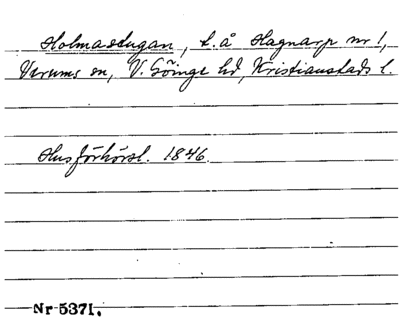 Holmastugan, t. å Hagnarp nr 1,
Verums sn, V. Göinge hd, Kristianstads l.
Husförhörsl. 1846.
Nr 5371.